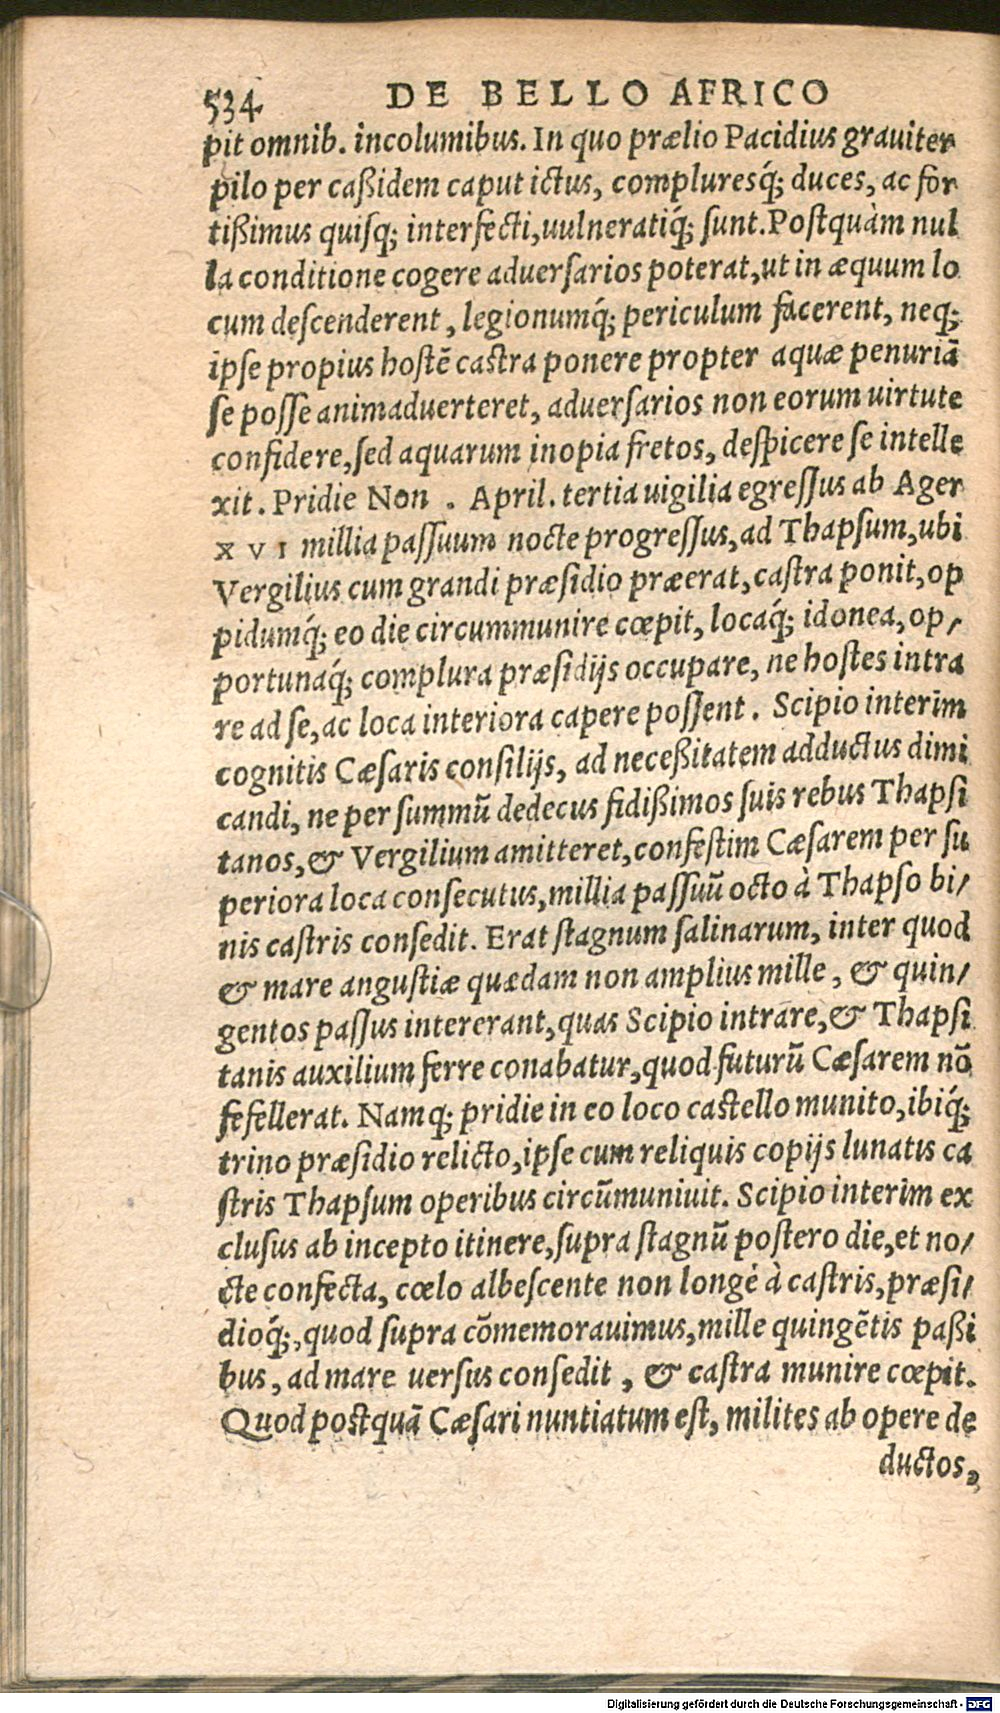 534 DE BELLO AFRICO
pit omnib. incolumibus. In quo prælio Pacidius grauiter
pilo per caßidem caput ictus, compluresq́; duces, ac for
tißimus quisq; interfecti, uulneratiq́; ſunt. Poſtquàm nul
la conditione cogere aduerſarios poterat, ut in æquum lo
cum deſcenderent, legionumq́; periculum facerent, neq;
ipſe propius hoſtē caſtra ponere propter aquæ penuriā
ſe poſſe animaduerteret, aduerſarios non eorum uirtute
confidere, ſed aquarum inopia fretos, deſpicere ſe intelle
xit. Pridie Non . April. tertia uigilia egreſſus ab Ager
XVI millia paſſuum nocte progreſſus, ad Thapſum, ubi
Vergilius cum grandi præſidio præerat, caſtra ponit, op
pidumq́; eo die circummunire cœpit, locaq́; idonea, op/
portunaq́; complura præſidijs occupare, ne hoſtes intra
re ad ſe, ac loca interiora capere poſſent. Scipio interim
cognitis Cæſaris conſilijs, ad neceßitatem adductus dimi
candi, ne per ſummū dedecus fidißimos ſuis rebus Thapſi
tanos, & Vergilium amitteret, confeſtim Cæſarem per ſu
periora loca conſecutus, millia paſſuū octo à Thapſo bi/
nis caſtris conſedit. Erat ſtagnum ſalinarum, inter quod
& mare anguſtiæ quædam non amplius mille, & quin/
gentos paſſus intererant, quas Scipio intrare, & Thapſi
tanis auxilium ferre conabatur, quod futurū Cæſarem nō
fefellerat. Namq; pridie in eo loco caſtello munito, ibiq́;
trino præſidio relicto, ipſe cum reliquis copijs lunatis ca
ſtris Thapſum operibus circūmuniuit. Scipio interim ex
cluſus ab incepto itinere, ſupra ſtagnū poſtero die, et no/
cte confecta, cœlo albeſcente non longè à caſtris, præſi/
dioq́;, quod ſupra cōmemorauimus, mille quingētis paßi
bus, ad mare uerſus conſedit, & caſtra munire cœpit.
Quod poſtquā Cæſari nuntiatum eſt, milites ab opere de
ductos,
Digitalisierung gefördert durch die Deutsche Forschungsgemeinschaft - DFG